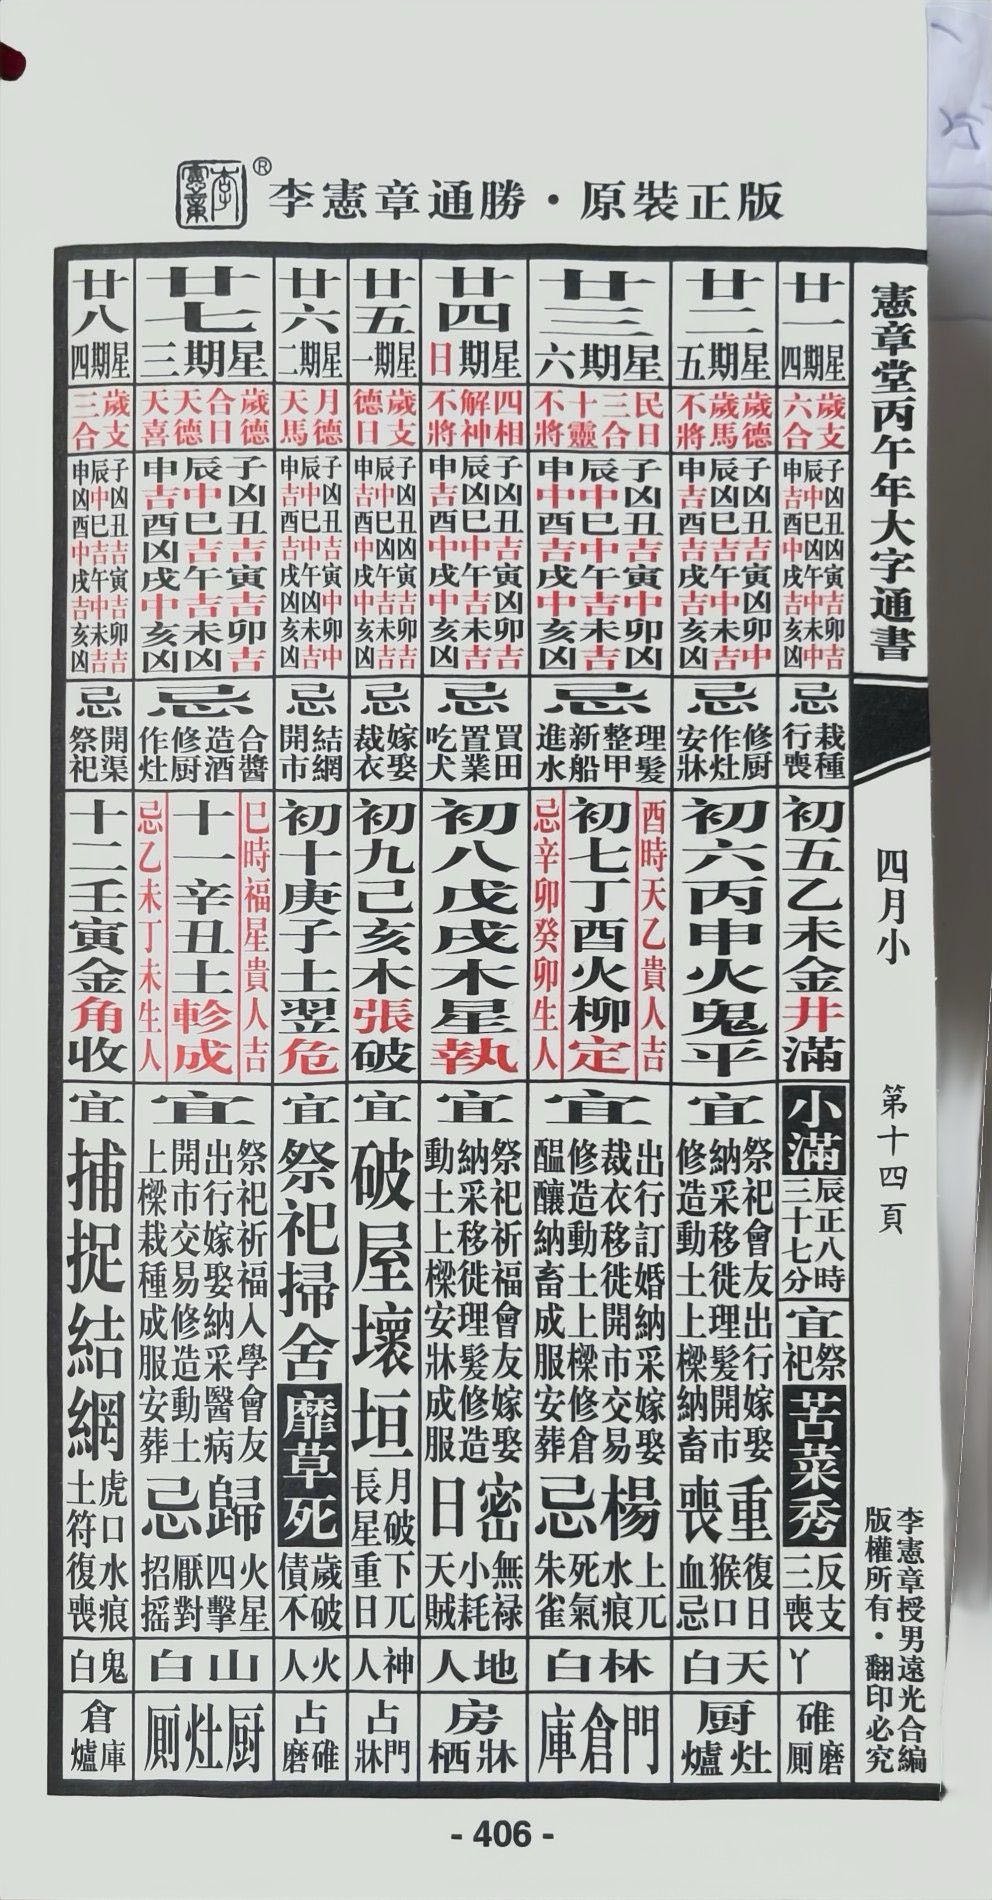 李憲章®
李憲章通勝・原裝正版
憲章堂丙午年大字通書
四月小
第十四頁
李憲章授男遠光合編
版權所有・翻印必究
廿一
星期四
歲支六合
子凶丑凶寅吉卯吉
辰中巳凶午中未中
申吉酉中戌吉亥凶
忌
栽種行喪
初五乙未金井滿
小滿
辰正八時三十七分
宜
祭祀
苦菜秀
反支三喪
丫
碓磨厠
廿二
星期五
歲德歲馬不將
子凶丑吉寅凶卯中
辰凶巳凶午中未吉
申吉酉吉戌吉亥凶
忌
修厨作灶安牀
初六丙申火鬼平
宜
祭祀會友出行嫁娶
納采移徙理髮開市
修造動土上樑納畜
重喪
復日猴口血忌
天白
厨灶爐
廿三
星期六
民日三合十靈不將
子凶丑吉寅中卯凶
辰中巳中午吉未吉
申中酉吉戌中亥凶
忌
理髮整甲新船進水
酉時天乙貴人吉
初七丁酉火柳定
忌辛卯癸卯生人
宜
出行訂婚納采嫁娶
裁衣移徙開市交易
修造動土上樑修倉
醞釀納畜成服安葬
楊忌
上兀水痕死氣朱雀
林白
門倉庫
廿四
星期日
四相解神不將
子凶丑吉寅凶卯吉
辰凶巳中午吉未吉
申吉酉中戌中亥凶
忌
買田置業吃犬
初八戊戌木星執
宜
祭祀祈福會友嫁娶
納采移徙理髮修造
動土上樑安牀成服
密日
無禄小耗天賊
地人
房牀栖
廿五
星期一
歲支德日
子凶丑凶寅吉卯吉
辰中巳凶午吉未吉
申吉酉中戌中亥凶
忌
嫁娶裁衣
初九己亥木張破
宜
破屋壞垣
月破長星
下兀重日
神人
占門牀
廿六
星期二
月德天馬
子凶丑吉寅中卯中
辰中巳中午凶未吉
申吉酉吉戌凶亥凶
忌
結網開市
初十庚子土翌危
宜
祭祀掃舍
靡草死
歲破債不
火人
占碓磨
廿七
星期三
歲德合日天德天喜
子凶丑吉寅吉卯吉
辰中巳吉午吉未凶
申吉酉凶戌中亥凶
忌
合醬造酒修厨作灶
巳時福星貴人吉
十一辛丑土軫成
忌乙未丁未生人
宜
祭祀祈福入學會友
出行嫁娶納采醫病
開市交易修造動土
上樑栽種成服安葬
歸忌
火星四擊厭對招摇
山白
厨灶厠
廿八
星期四
歲支三合
子凶丑吉寅吉卯吉
辰中巳吉午中未吉
申凶酉中戌吉亥凶
忌
開渠祭祀
十二壬寅金角收
宜
捕捉結網
虎口土符
水痕復喪
鬼白
倉庫爐
- 406 -